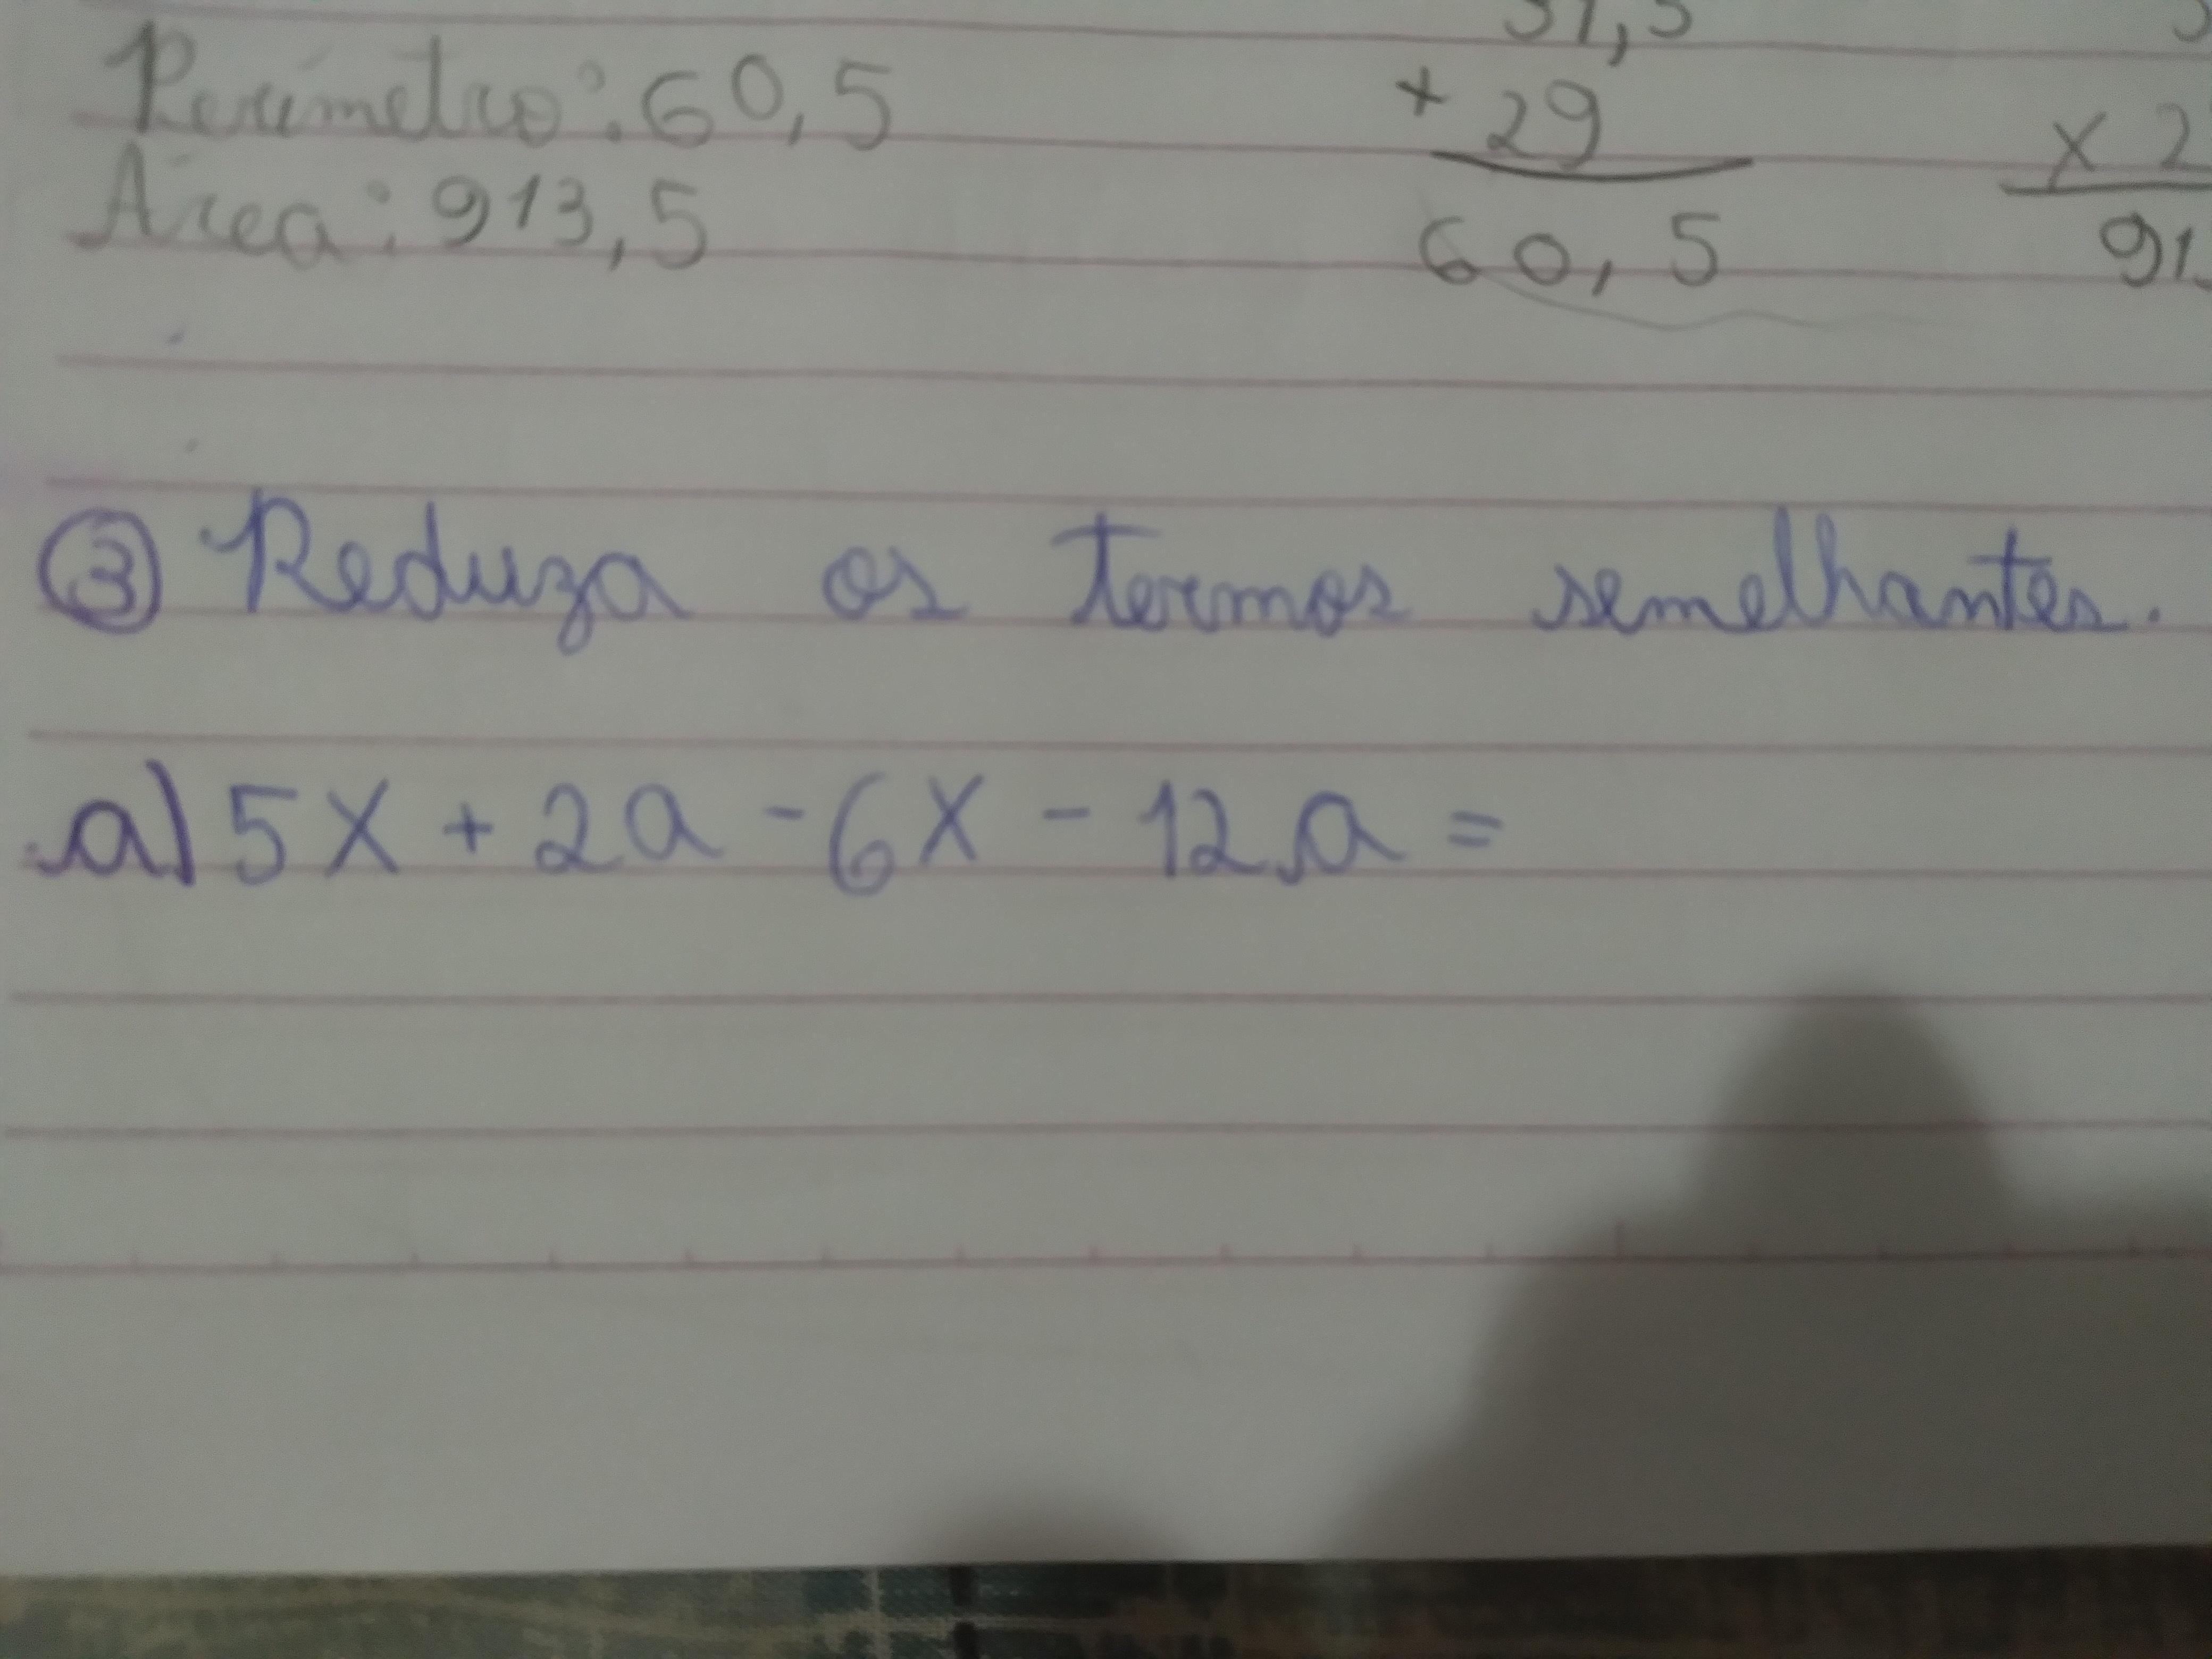 31,5
Perímetro: 60,5 + 29 x 2
Área: 913,5 60,5 91
③ Reduza os termos semelhantes.
a) 5x + 2a - 6x - 12a =